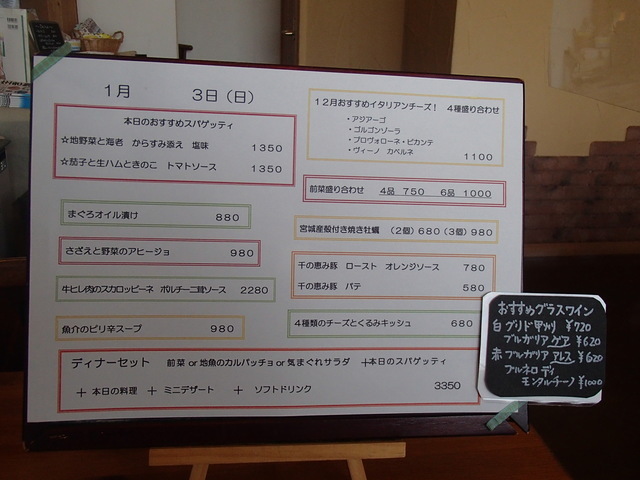 1月 3日(日)
本日のおすすめスパゲッティ
☆地野菜と海老 からすみ添え 塩味 1350
☆茄子と生ハムときのこ トマトソース 1350
12月おすすめイタリアンチーズ! 4種盛り合わせ
・アジアーゴ
・ゴルゴンゾーラ
・プロヴォローネ・ピカンテ
・ヴィーノ カペルネ
1100
前菜盛り合わせ 4品 750 6品 1000
まぐろオイル漬け 880
宮城産殻付き焼き牡蠣 (2個) 680 (3個) 980
さざえと野菜のアヒージョ 980
千の恵み豚 ロースト オレンジソース 780
千の恵み豚 パテ 580
牛ヒレ肉のスカロッピーネ ポルチーニ茸ソース 2280
魚介のピリ辛スープ 980
4種類のチーズとくるみキッシュ 680
ディナーセット 前菜 or 地魚のカルパッチョ or 気まぐれサラダ +本日のスパゲッティ
+ 本日の料理 + ミニデザート + ソフトドリンク 3350
おすすめグラスワイン
白 グリド甲州 ¥720
ブルガリア ケア ¥620
赤 ブルガリア アレス ¥620
ブルネロ ディ
モンタルチーノ ¥1000